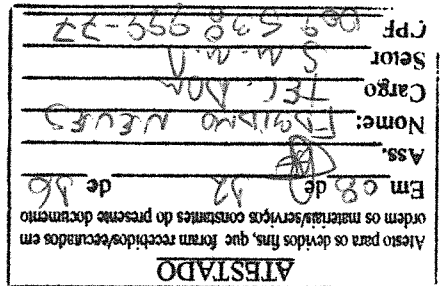 ATESTADO
Atesto para os devidos fins, que foram recebidos/executados em
ordem os materiais/serviços constantes do presente documento
Em 08 de 12 de 16
Ass.
Nome: FABIANO NEVES
Cargo TEC. ADM
Setor S.M.M.A
CPF 009 530 999-77